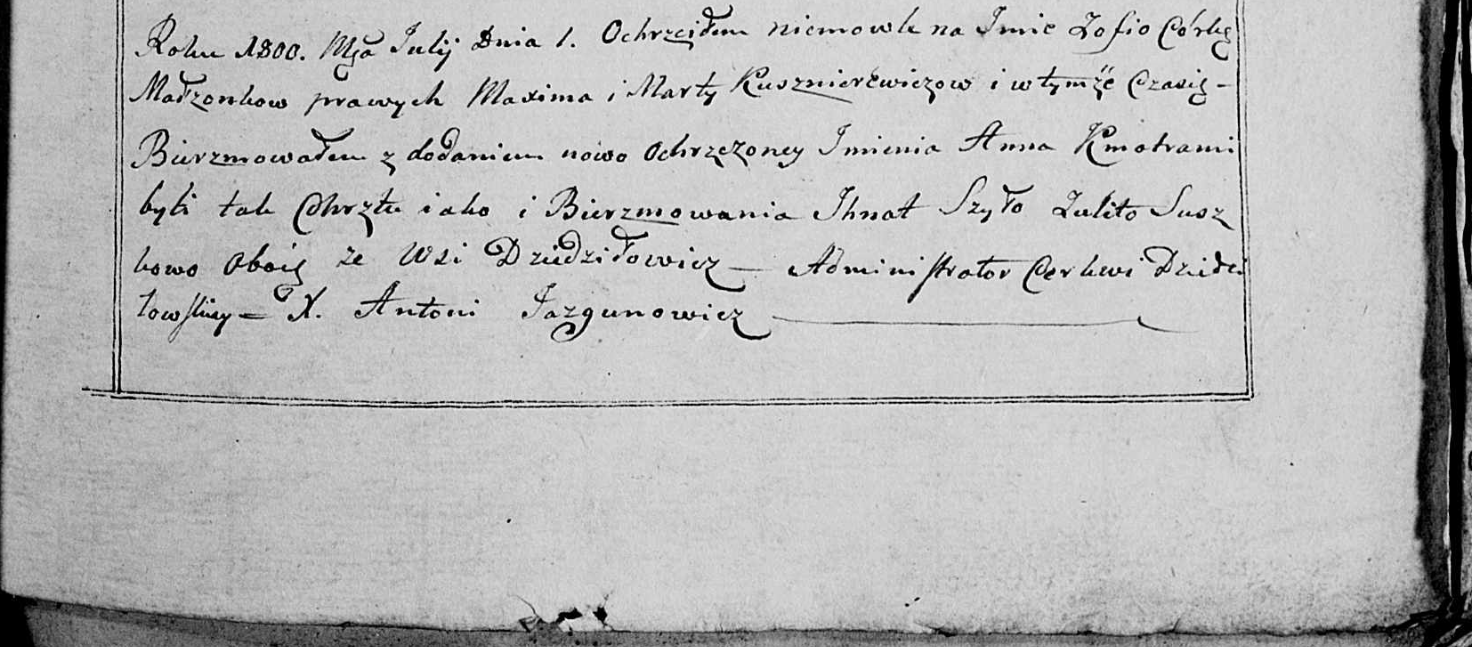 Roku 1800. Mca Julij Dnia 1. Ochrzciłem niemowle na Imie Zofio Córkę
Małzonkow prawych Maxima i Marty Kusznierewiczow i w tymże Czasię –
Bierzmowałem z dodaniem nowo Ochrzczoney Imienia Anna Kmotrami
byli tak Chrztu iako i Bierzmowania Ihnat Szyło Julito Susz
kowo Oboię ze Wsi Dziedziłowicz — Administrator Cerkwi Dziedzi
łowskiey — X. Antoni Jazgunowicz